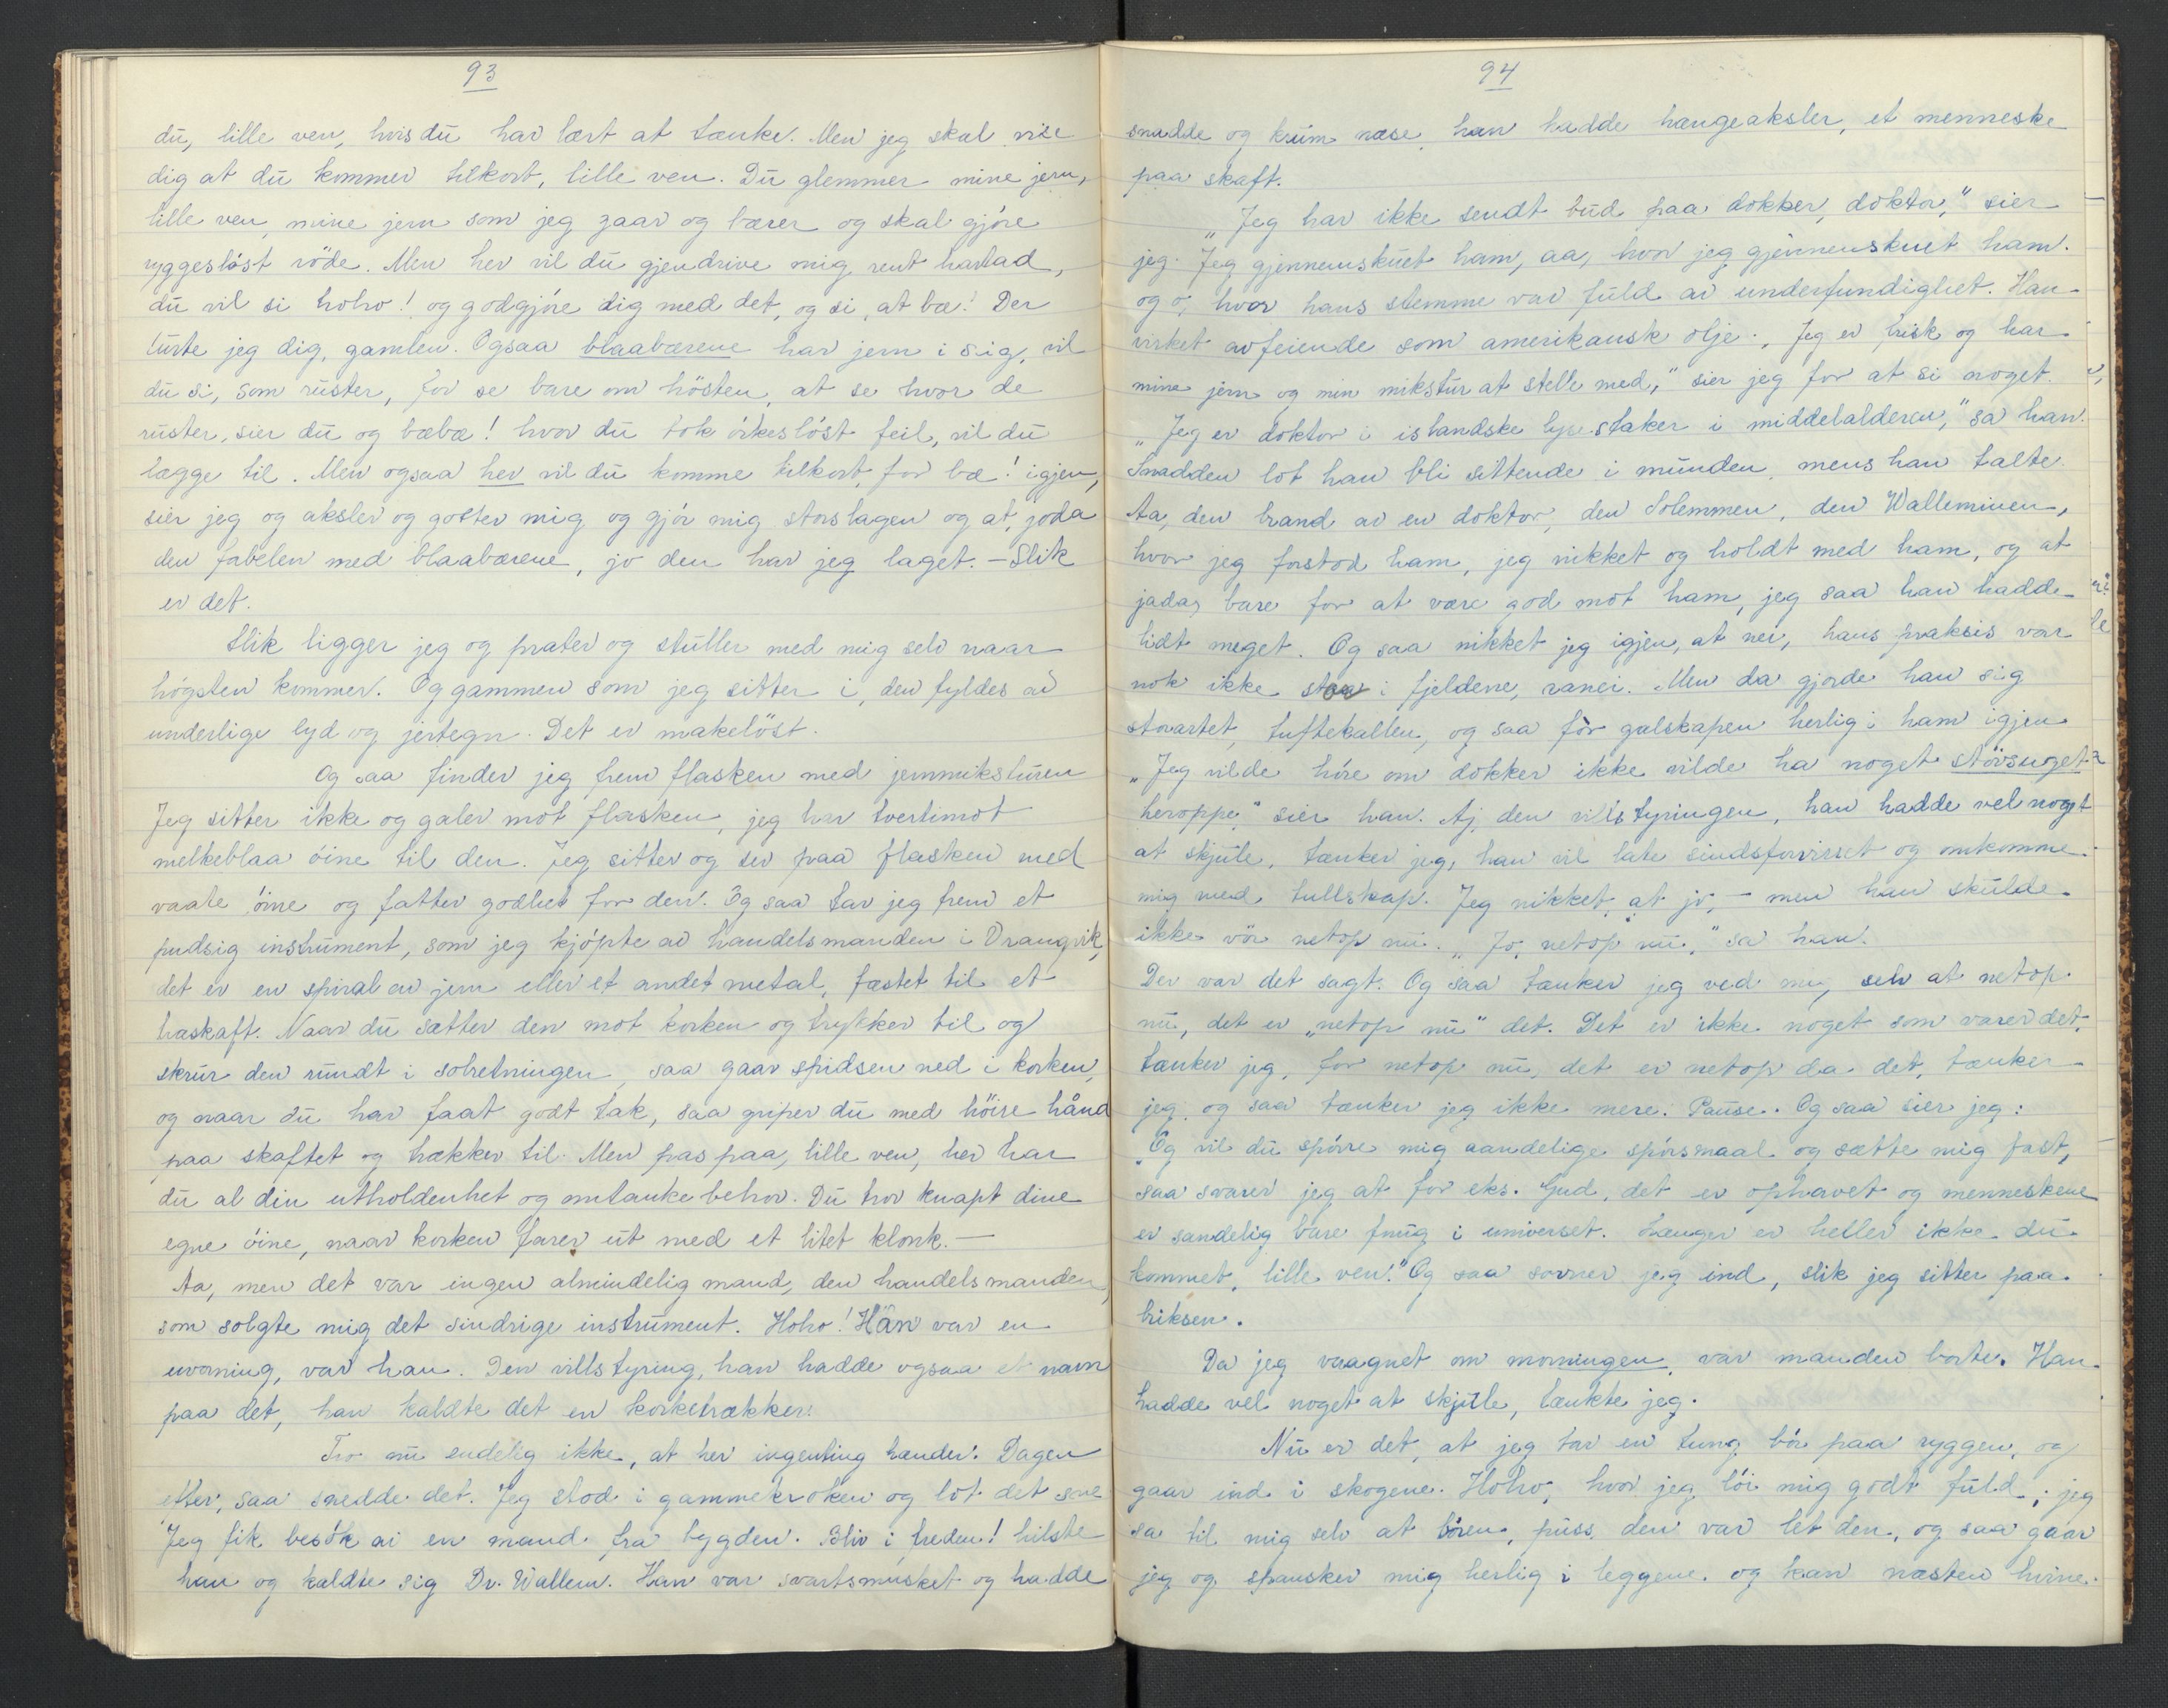 93
du, lille ven, hvis du har lært at tænke. Men jeg skal vise
dig at du kommer tilkort, lille ven. Du glemmer mine jern,
lille ven, mine jern som jeg gaar og bærer og skal gjöre
ryggeslöst röde. Men her vil du gjendrive mig, rent harlad,
du vil si hoho! og godgjöre dig med det, og si, at bæ! Der
lurte jeg dig, gamlen. Ogsaa blaabærene har jern i sig, vil
du si, som ruster, for se bare om hösten, at se hvor de
ruster, sier du og bæbæ! hvor du tok örkeslöst feil, vil du
lægge til. Men ogsaa her vil du komme tilkort, for bæ! igjen,
sier jeg og aksler og gotter mig og gjör mig storslagen og at, joda
den fabelen med blaabærene, jo den har jeg laget. - Slik
er det.
Slik ligger jeg og prater og stuller med mig selv naar
högsten kommer. Og gammen som jeg sitter i, den fyldes av
underlige lyd og jertegn. Det er makelöst.
Og saa finder jeg frem flasken med jernmiksturen
Jeg sitter ikke og galer mot flasken, jeg har tvertimot
melkeblaa öine til den. Jeg sitter og ser paa flasken med
vaate öine og fatter godhet for den. Og saa tar jeg frem et
pudsig instrument, som jeg kjöpte av handelsmanden i Drangvik,
det er en spiral av jern eller et andet metal, fæstet til et
træskaft. Naar du sætter den mot korken og trykker til og
skrur den rundt i solretningen, saa gaar spidsen ned i korken,
og naar du har faat godt tak, saa griper du med höire hånd
paa skaftet og trækker til. Men pas paa, lille ven, her har
du al din utholdenhet og omtanke behov. Du tror knapt dine
egne öine, naar korken farer ut med et litet klonk. -
Aa, men det var ingen almindelig mand, den handelsmanden,
som solgte mig det sindrige instrument. Hoho! Han var en
uvorning, var han. Den villstyring, han hadde ogsaa et navn
paa det, han kaldte det en korketrækker.
Tro nu endelig ikke, at her ingenting hænder. Dagen
efter, saa snedde det. Jeg stod i gammekroken og lot det sne
Jeg fik besök av en mand fra bygden. Bliv i freden! hilste
han og kaldte sig Dr. Wallem. Han var svartsmusket og hadde
94
snadde og krum næse, han hadde hængeaksler, et menneske
paa skaft.
"Jeg har ikke sendt bud paa dokker, doktor," sier
jeg. Jeg gjennemskuet ham, aa, hvor jeg gjennemskuet ham.
og o, hvor hans stemme var fuld av underfundighet. Han
virket avfeiende som amerikansk olje. "Jeg er frisk og har
mine jern og min mikstur at stelle med," sier jeg for at si noget.
"Jeg er doktor i islandske lysestaker i middelalderen," sa han.
Snadden lot han bli sittende i munden, mens han talte.
Aa, den brand av en doktor, den Solemmen, den Walleminen,
hvor jeg forstod ham, jeg nikket og holdt med ham, og at
jada, bare for at være god mot ham, jeg saa han hadde
lidt meget. Og saa nikket jeg igjen, at nei, hans praksis var
nok ikke stor i fjeldene, ranei. Men da gjorde han sig
storartet, tuftekallen, og saa fòr galskapen herlig i ham igjen
"Jeg vilde höre om dokker ikke vilde ha noget stövsuget
heroppe" sier han. Aj, den villstyringen, han hadde vel noget
at skjule, tænker jeg, han vil late sindsforvirret og omkomme
mig med tullskap. Jeg nikket, at jo, - men han skulde
ikke vör netop nu. "Jo, netop nu," sa han.
Der var det sagt. Og saa tænker jeg ved mig selv at netop
nu, det er "netop nu" det. Det er ikke noget som varer det,
tænker jeg, for netop nu, det er netop da det, tænker
jeg, og saa tænker jeg ikke mere. Pause. Og saa sier jeg:
"Og vil du spörre mig aandelige spörsmaal og sætte mig fast,
saa svarer jeg at for eks. Gud, det er ophavet og menneskene
er sandelig bare fnug i universet. Længer er heller ikke du
kommet, lille ven." Og saa sovner jeg ind, slik jeg sitter paa
briksen.
Da jeg vaagnet om morningen, var manden borte. Han
hadde vel noget at skjule, tænkte jeg.
Nu er det, at jeg tar en tung bör paa ryggen, og
gaar ind i skogene. Hoho, hvor jeg löi mig godt fuld, jeg
sa til mig selv at bören, puss, den var let den, og saa gaar
jeg og spansker mig herlig i leggene, og kan næsten hvine.